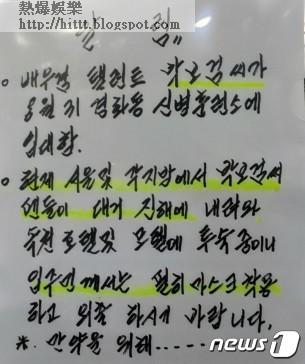 熱爆娛樂
http://hittt.blogspot.com
알 림"
○ 배우겸 탤런트 박보검씨가
경화동 신병훈련소에
입대함.
○ 현재 서울및 각지방에서 박보검씨
팬들이 대거 진해에 내려와
호텔및 모텔에 투숙중이니
입주민께서는 필히 마스크 착용
하고 외출 하시기 바랍니다.
※. 만약을 위해-----
news1